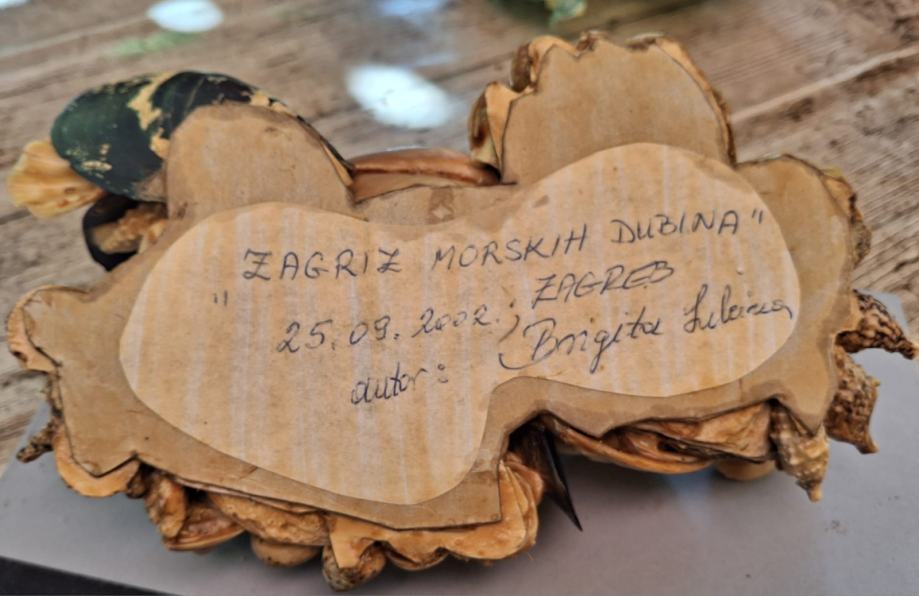 "ZAGRIZ MORSKIH DUBINA"
25.09.2002., ZAGREB
autor: Brigita